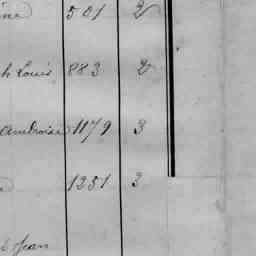 501 2
h Louis 883 2
Ambroise 1179 3
1251 3
Jean